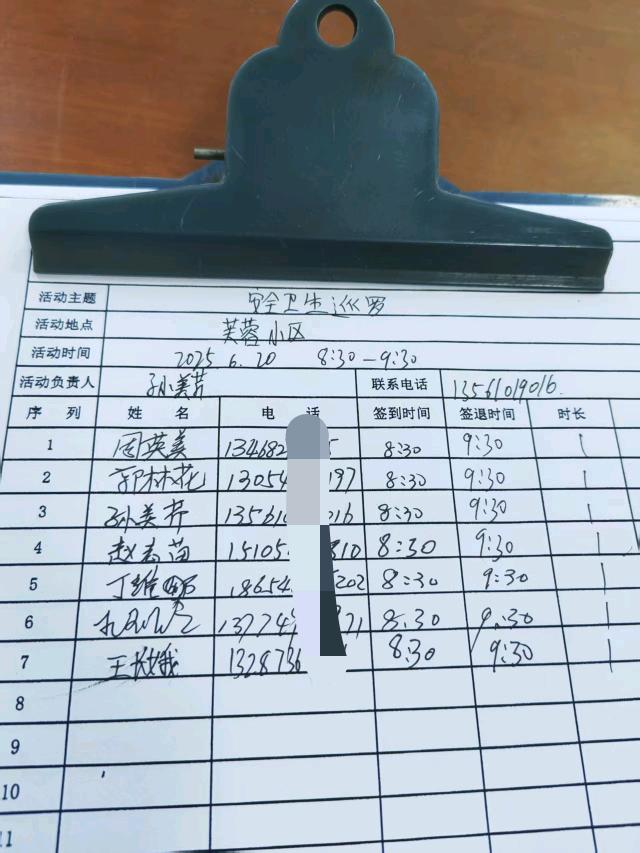 活动主题 安全卫生巡罗
活动地点 芙蓉小区
活动时间 2025.6.20 8:30-9:30
活动负责人 孙美芹 联系电话 13561019016.
序列 姓名 电话 签到时间 签退时间 时长
1 周英美 134682 8:30 9:30 1
2 郭林花 13054 197 8:30 9:30 1
3 孙美芹 13561 016 8:30 9:30 1
4 赵 苗 15105 310 8:30 9:30 1
5 丁维 18654 202 8:30 9:30 1
6 13774 71 8.30 9.30 1
7 王 娥 1328736 8:30 9:30 1
8
9
10
11